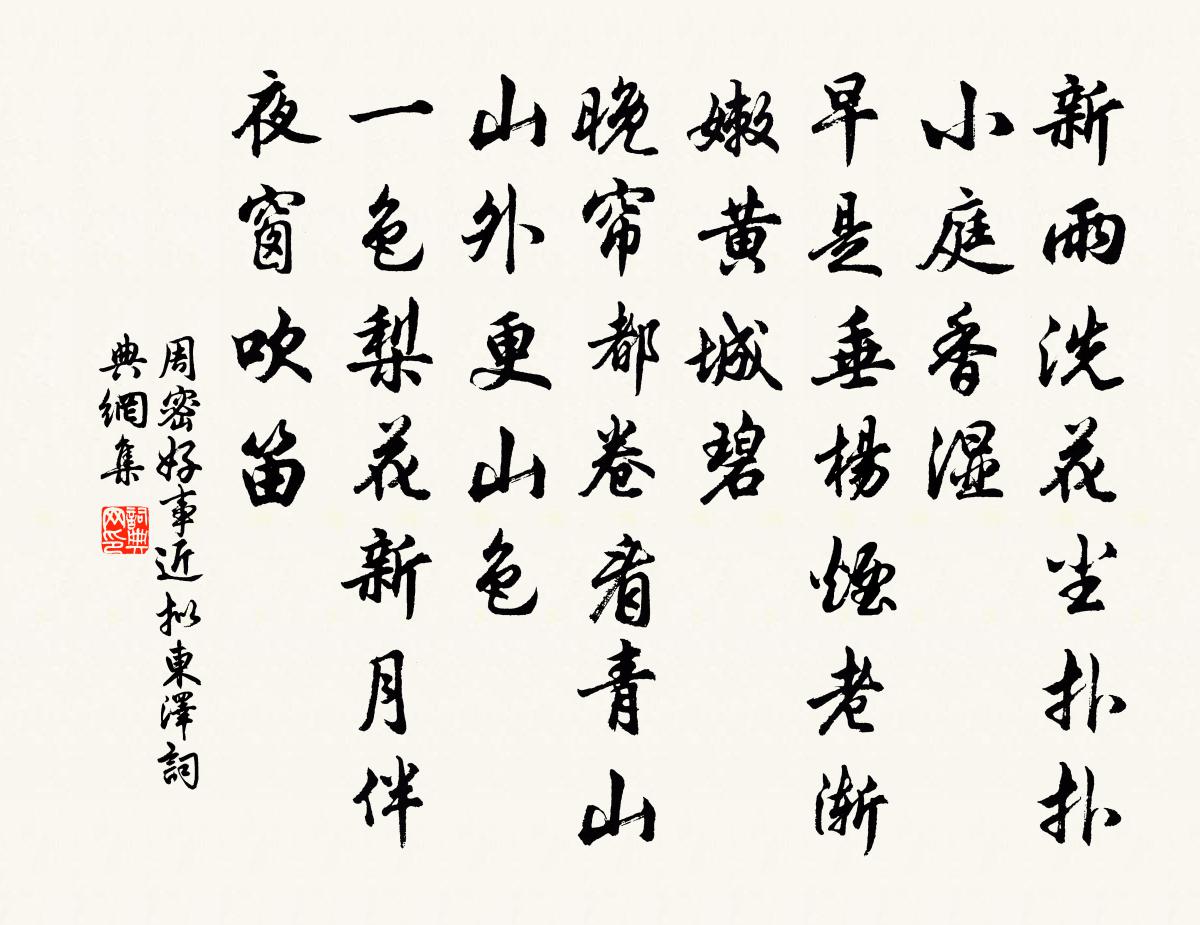 新雨洗花尘扑扑
小庭香湿
早是垂楊煙老漸
嫩黄城碧
晚帘都卷看青山
山外更山色
一色梨花新月伴
夜窗吹笛
周密好事近拟東澤詞
典網集
詞典网印